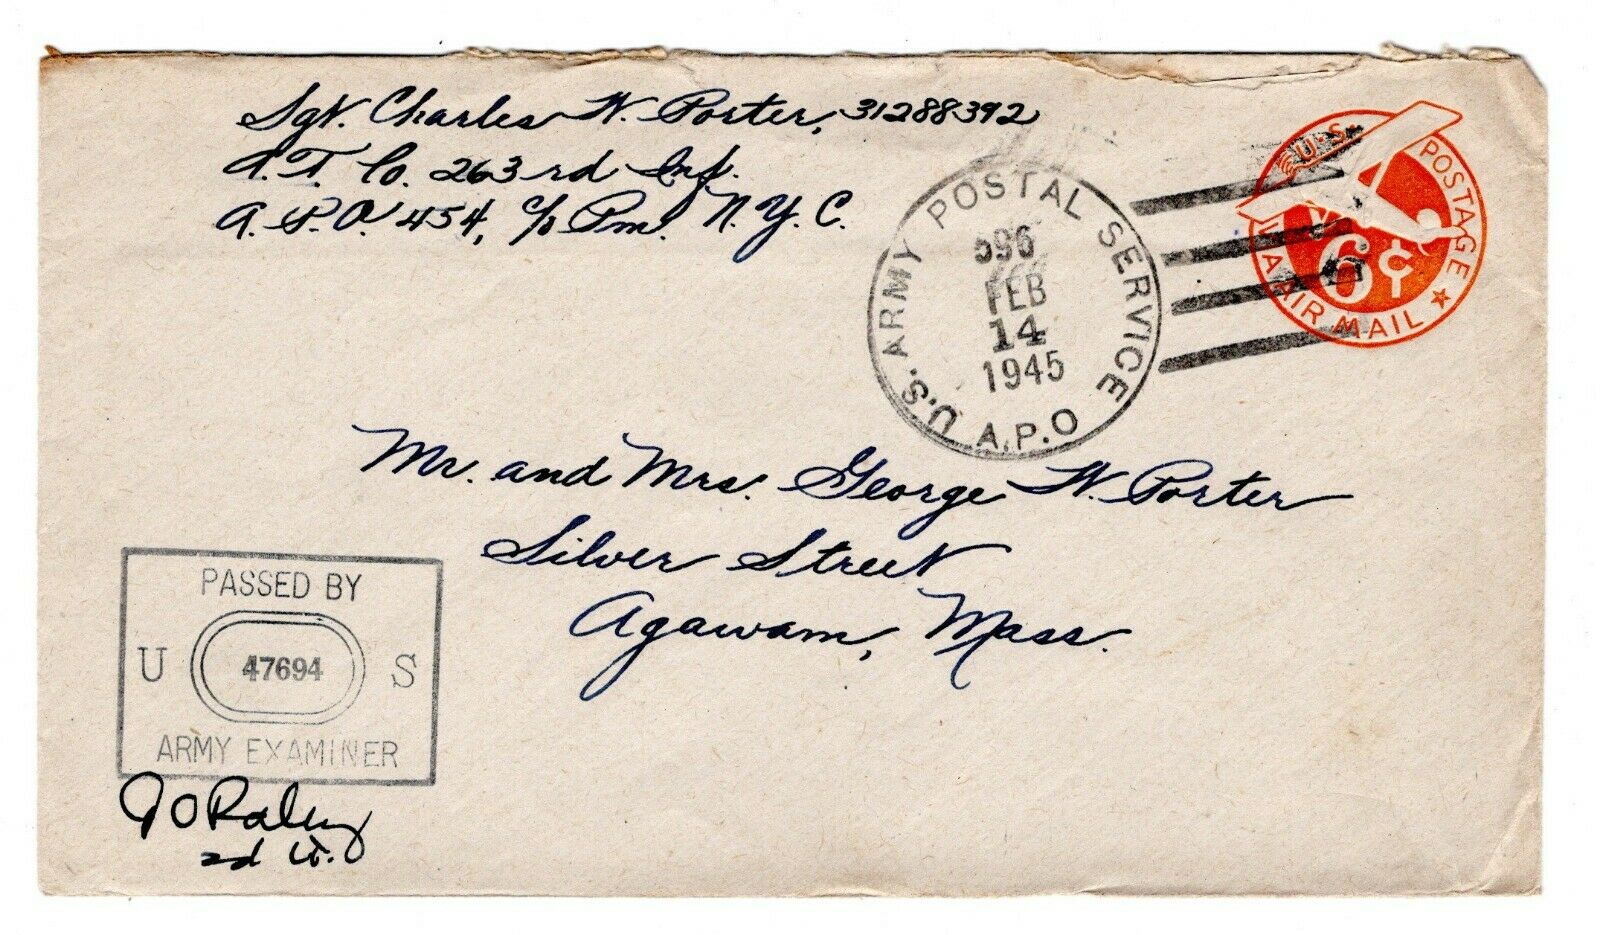 Sgt. Charles W. Porter, 31288392
A.T. Co. 263rd Inf.
A.P.O. 454, c/o Pm. N.Y.C.
U.S. ARMY POSTAL SERVICE
A.P.O
596
FEB
14
1945
U.S. POSTAGE
VIA AIR MAIL
6¢
Mr. and Mrs. George W. Porter
Silver Street
Agawam, Mass.
PASSED BY
U 47694 S
ARMY EXAMINER
JO Raley
2d Lt.